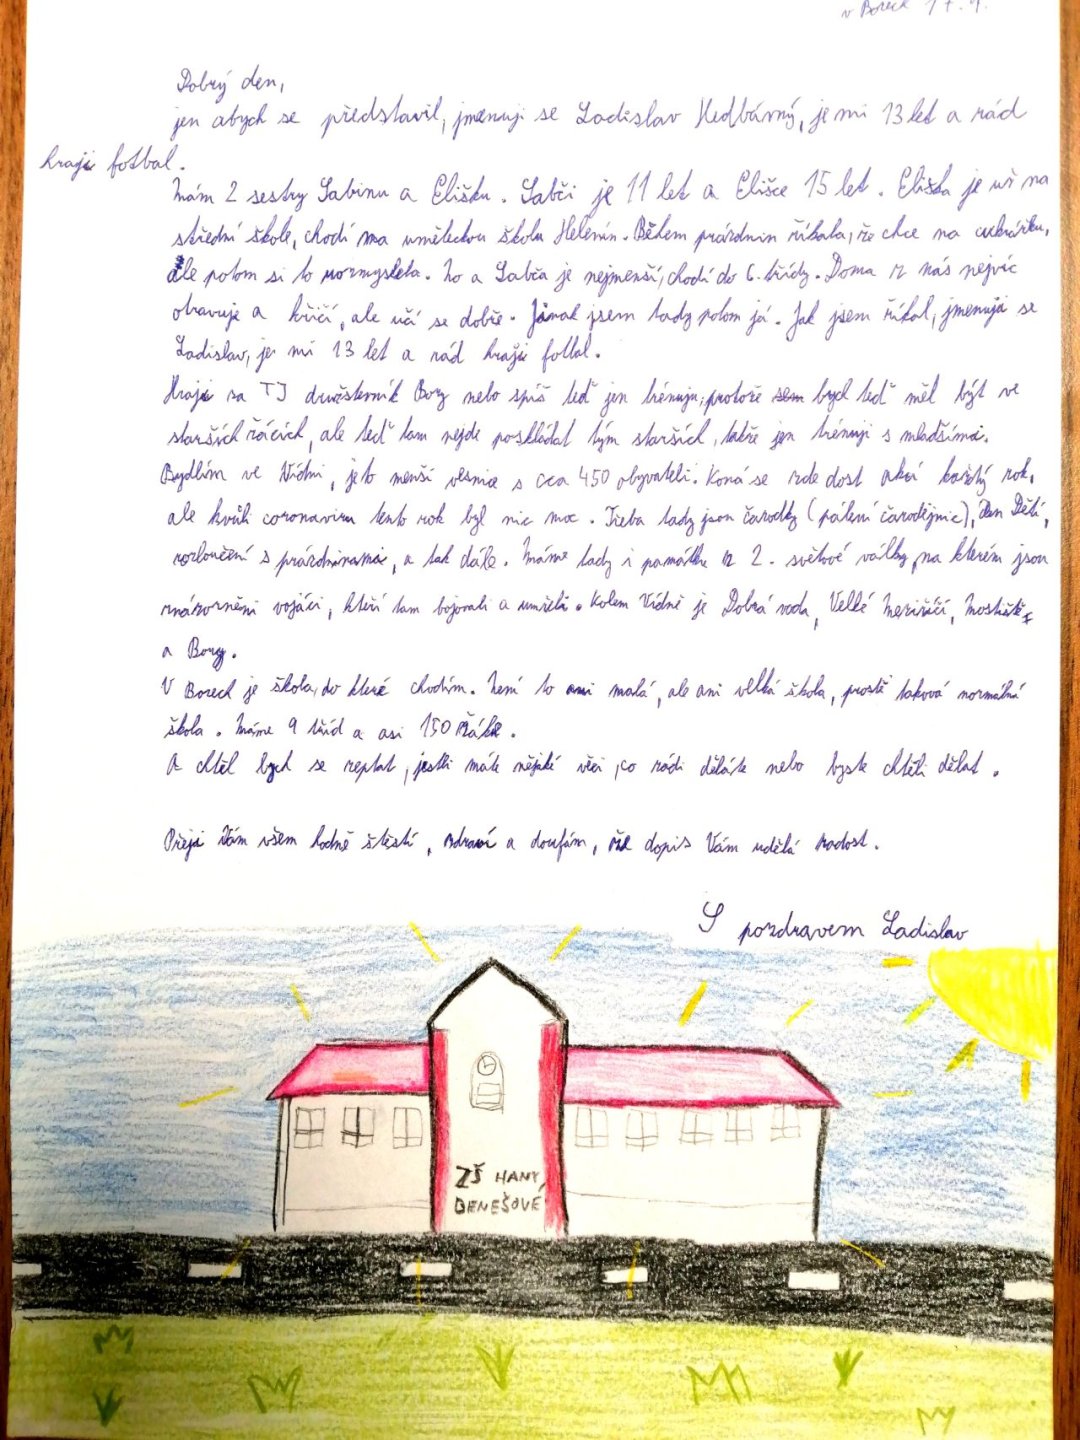 v Borech 17. 9.
Dobrý den,
jen abych se představil, jmenuji se Ladislav Hedbávný, je mi 13 let a rád
hraji fotbal.
Mám 2 sestry Sabinu a Elišku. Sabči je 11 let a Elišce 15 let. Eliška je už na
střední škole, chodí na uměleckou školu Helenín. Během prázdnin říkala, že chce na cukrářku,
ale potom si to rozmyslela. No a Sabča je nejmenší, chodí do 6. třídy. Doma z nás nejvíc
otravuje a křičí, ale učí se dobře. Jinak jsem tady potom já. Jak jsem říkal, jmenuji se
Ladislav, je mi 13 let a rád hraji fotbal.
Hraji za TJ družstevník Bory nebo spíš teď jen trénuji, protože bych teď měl být ve
starších žácích, ale teď tam nejde poskládat tým starších, takže jen trénuji s mladšími.
Bydlím ve Vídni, je to menší vesnice s cca 450 obyvateli. Koná se zde dost akcí každý rok,
ale kvůli coronaviru tento rok byl nic moc. Třeba tady jsou čarodky (pálení čarodějnic), Den Dětí,
rozloučení s prázdninami, a tak dále. Máme tady i památku z 2. světové války, na kterém jsou
znázorněni vojáci, kteří tam bojovali a umřeli. Kolem Vídně je Dobrá voda, Velké Meziříčí, Mostiště
a Bory.
V Borech je škola, do které chodím. Není to ani malá, ale ani velká škola, prostě taková normální
škola. Máme 9 tříd a asi 150 žáků.
A chtěl bych se zeptat, jestli máte nějaké věci, co rádi děláte nebo byste chtěli dělat.
Přeji Vám všem hodně štěstí, zdraví a doufám, že dopis Vám udělá radost.
S pozdravem Ladislav
ZŠ HANY
BENEŠOVÉ